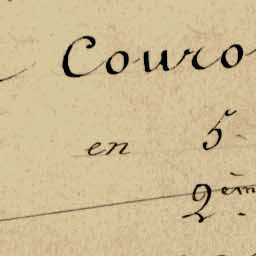 Couro
en 5
2èm